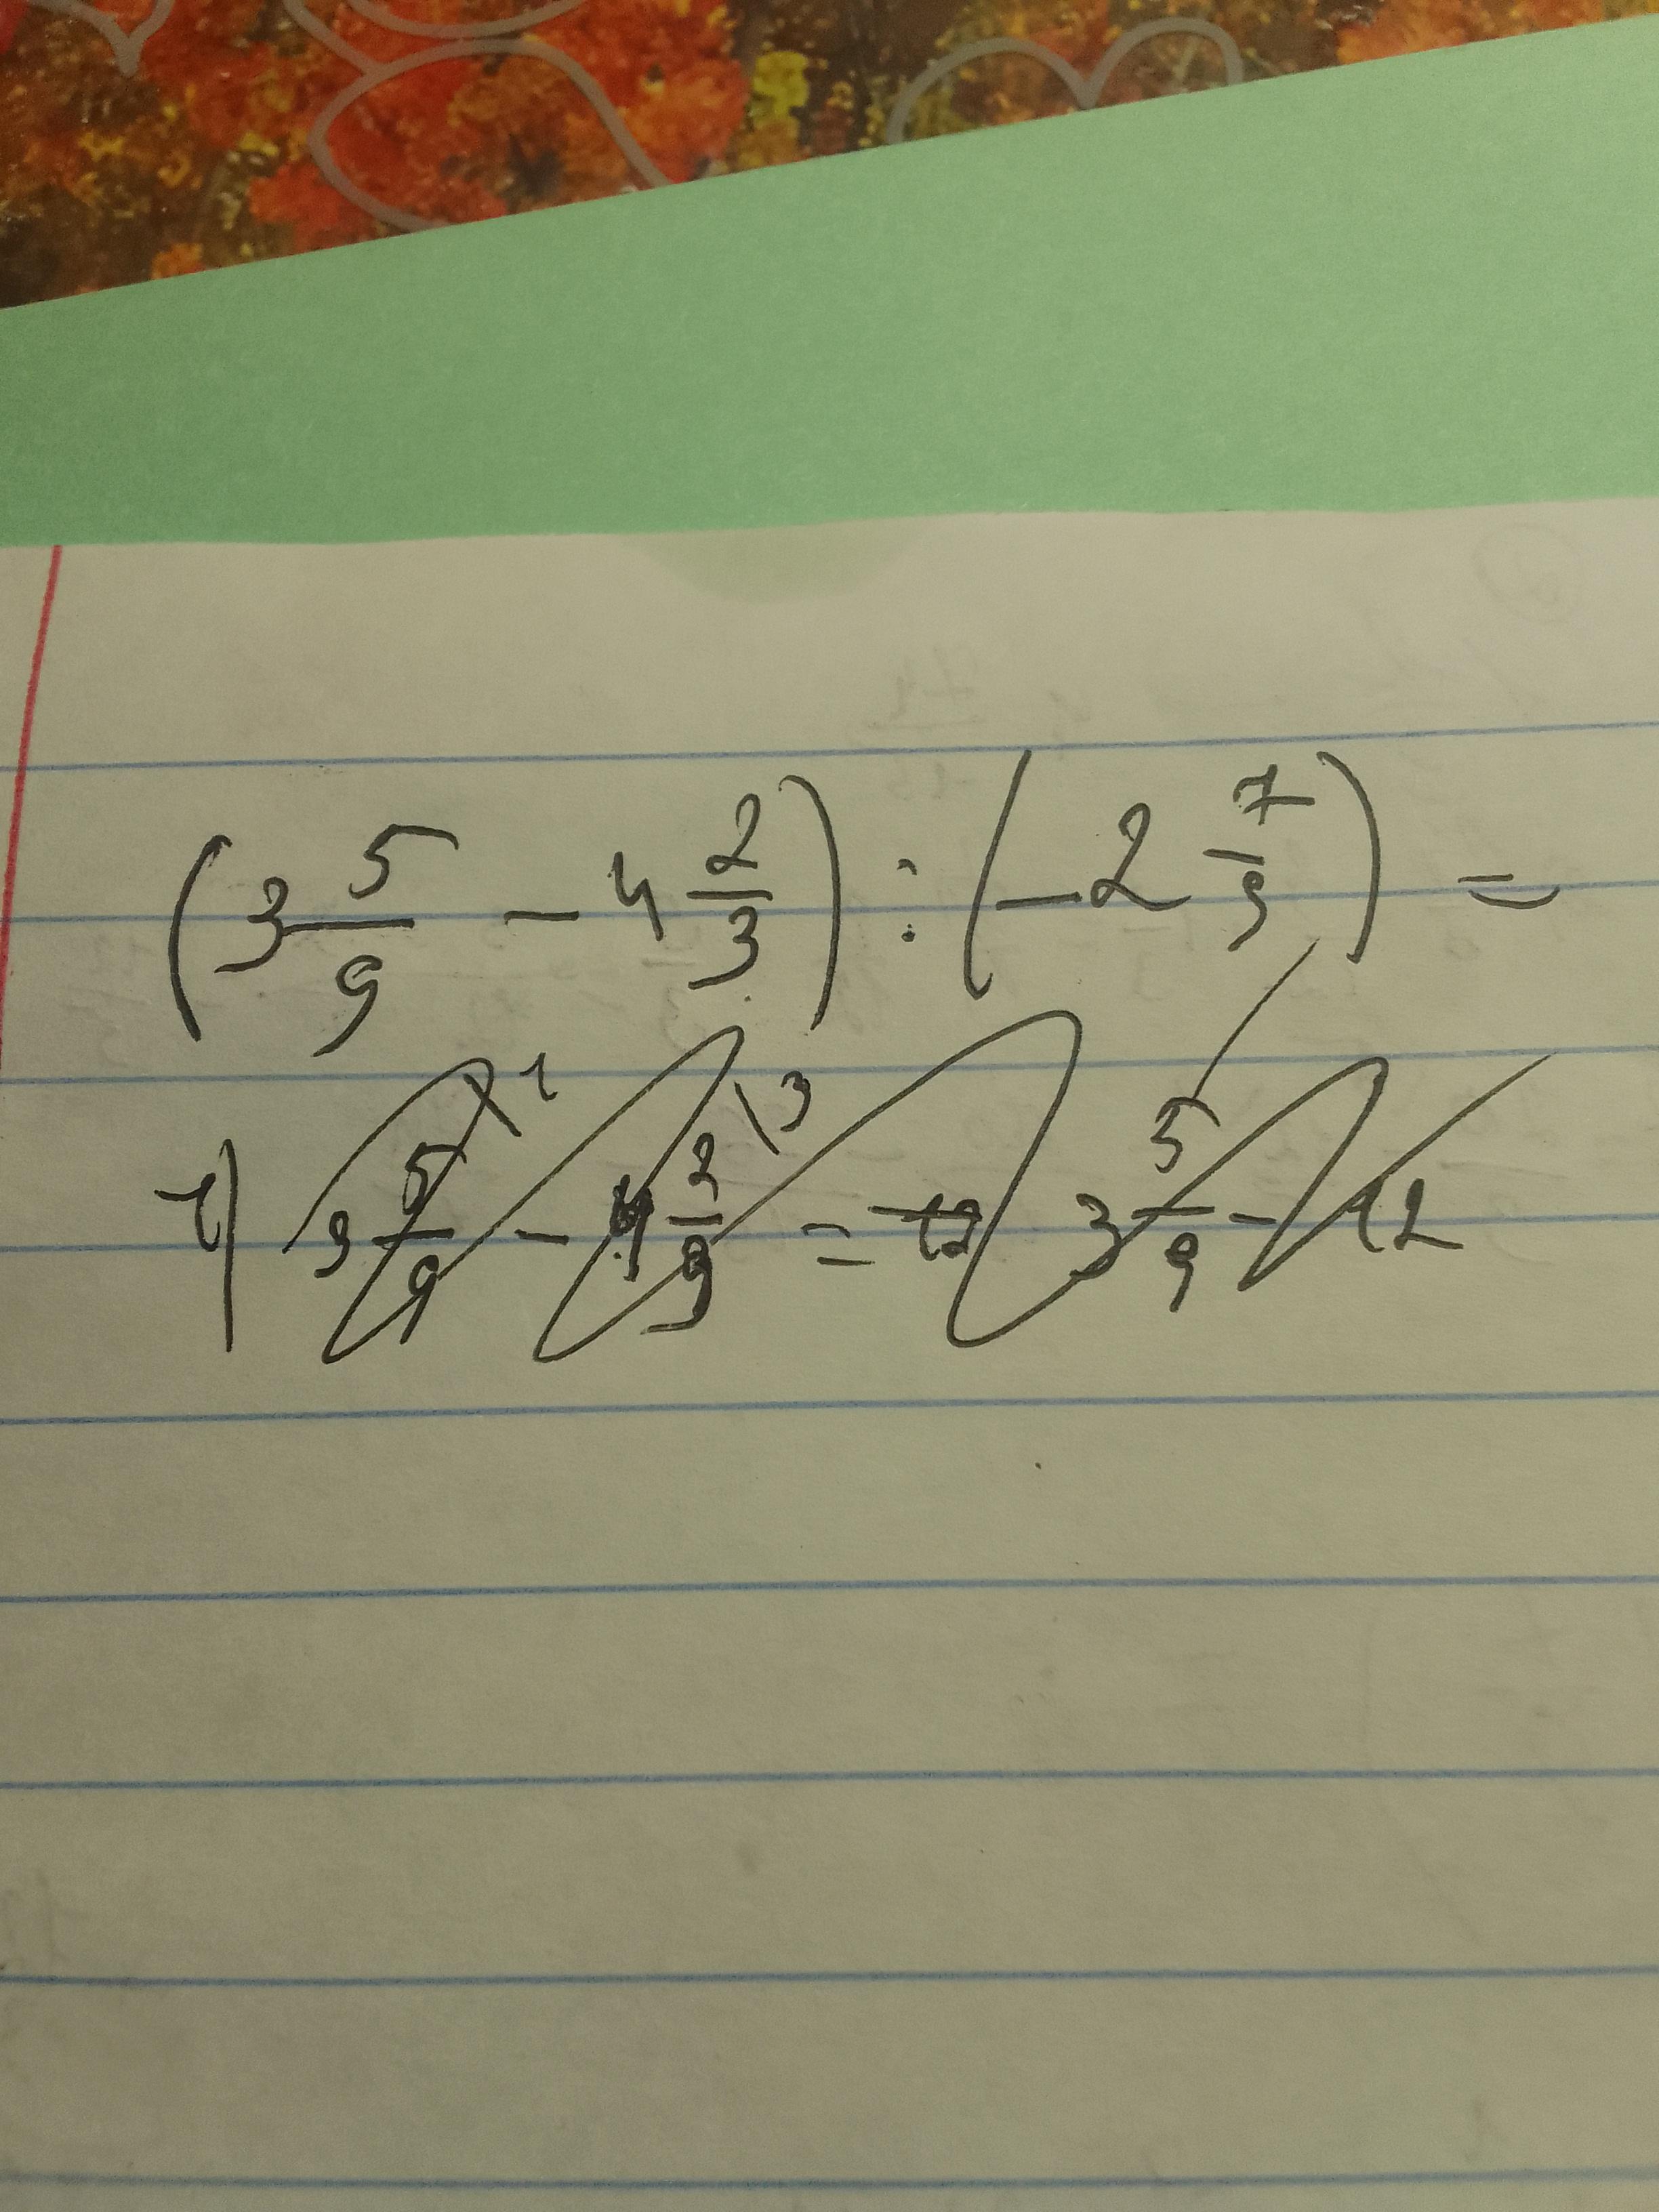 (3 5/9 - 4 2/3) : (-2 7/9) =
1) 3 5/9 \1 - 4 2/3 \3 = -12 3 5/9 - 12